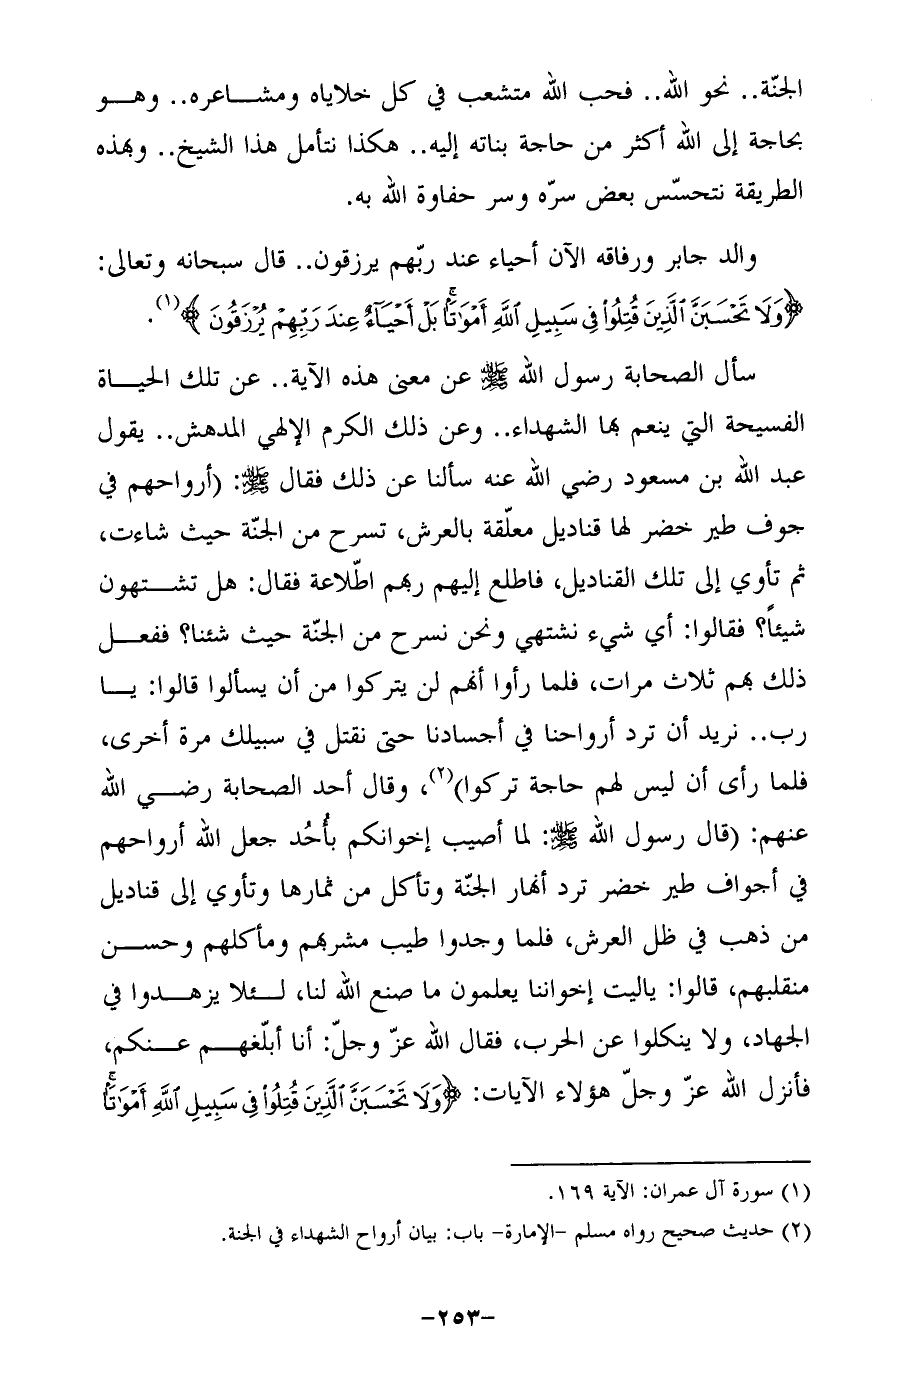 الجنّة.. نحو الله.. فحب الله متشعب في كل خلاياه ومشـــاعره.. وهـــو
بحاجة إلى الله أكثر من حاجة بناته إليه.. هكذا نتأمل هذا الشيخ.. وبهذه
الطريقة نتحسّس بعض سرّه وسر حفاوة الله به.
والد جابر ورفاقه الآن أحياء عند ربّهم يرزقون.. قال سبحانه وتعالى:
﴿وَلَا تَحْسَبَنَّ ٱلَّذِينَ قُتِلُوا۟ فِى سَبِيلِ ٱللَّهِ أَمْوَٰتًۢا بَلْ أَحْيَآءٌ عِندَ رَبِّهِمْ يُرْزَقُونَ﴾(١).
سأل الصحابة رسول الله ﷺ عن معنى هذه الآية.. عن تلك الحيـــاة
الفسيحة التي ينعم بها الشهداء.. وعن ذلك الكرم الإلهي المدهش.. يقول
عبد الله بن مسعود رضي الله عنه سألنا عن ذلك فقال ﷺ: (أرواحهم في
جوف طير خضر لها قناديل معلّقة بالعرش، تسرح من الجنّة حيث شاءت،
ثم تأوي إلى تلك القناديل، فاطلع إليهم ربهم اطّلاعة فقال: هل تشـــتهون
شيئاً؟ فقالوا: أي شيء نشتهي ونحن نسرح من الجنّة حيث شئنا؟ ففعـــل
ذلك بهم ثلاث مرات، فلما رأوا أنهم لن يتركوا من أن يسألوا قالوا: يـــا
رب.. نريد أن ترد أرواحنا في أجسادنا حتى نقتل في سبيلك مرة أخرى،
فلما رأى أن ليس لهم حاجة تركوا)(٢)، وقال أحد الصحابة رضـــي الله
عنهم: (قال رسول الله ﷺ: لما أصيب إخوانكم بأُحُد جعل الله أرواحهم
في أجواف طير خضر ترد أنهار الجنّة وتأكل من ثمارها وتأوي إلى قناديل
من ذهب في ظل العرش، فلما وجدوا طيب مشربهم ومأكلهم وحســـن
منقلبهم، قالوا: ياليت إخواننا يعلمون ما صنع الله لنا، لـــئلا يزهـــدوا في
الجهاد، ولا ينكلوا عن الحرب، فقال الله عزّ وجلّ: أنا أبلّغهـــم عـــنكم،
فأنزل الله عزّ وجلّ هؤلاء الآيات: ﴿وَلَا تَحْسَبَنَّ ٱلَّذِينَ قُتِلُوا۟ فِى سَبِيلِ ٱللَّهِ أَمْوَٰتًۢا
(١) سورة آل عمران: الآية ١٦٩.
(٢) حديث صحيح رواه مسلم -الإمارة- باب: بيان أرواح الشهداء في الجنة.
-٢٥٣-